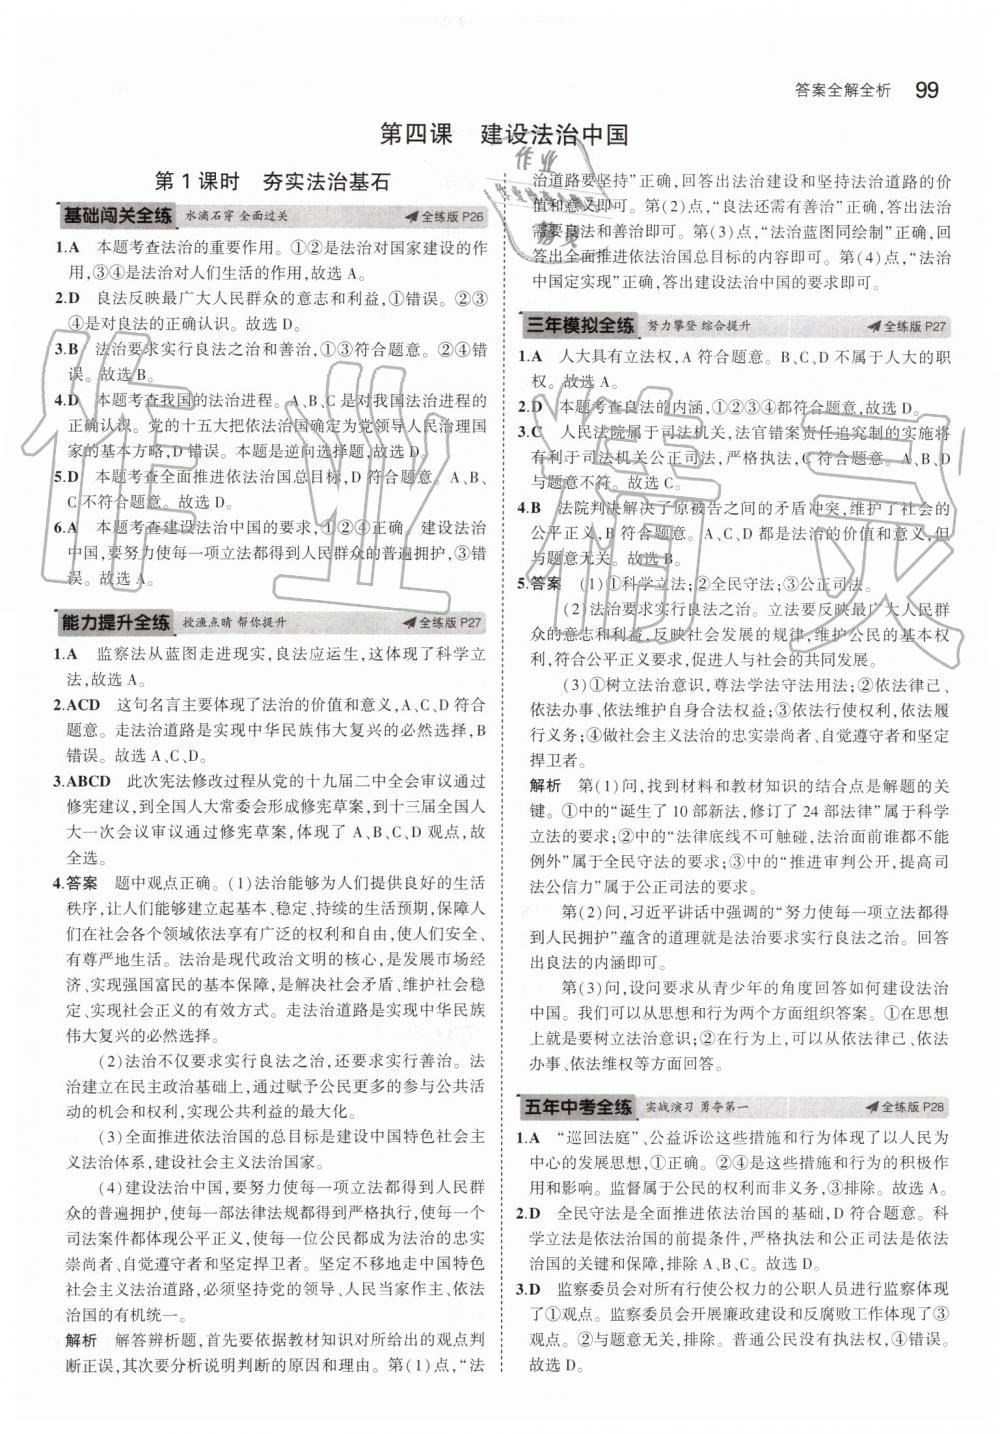 答案全解全析 99
第四课 建设法治中国
第1课时 夯实法治基石
基础闯关全练 水滴石穿 全面过关 全练版P26
1.A 本题考查法治的重要作用。①②是法治对国家建设的作
用,③④是法治对人们生活的作用,故选A。
2.D 良法反映最广大人民群众的意志和利益,①错误。②③
④是对良法的正确认识。故选D。
3.B 法治要求实行良法之治和善治,①③符合题意。②④错
误。故选B。
4.D 本题考查我国的法治进程。A、B、C是对我国法治进程的
正确认识。党的十五大把依法治国确定为党领导人民治理国
家的基本方略,D错误。本题是逆向选择题,故选D。
5.D 本题考查全面推进依法治国总目标,D符合题意。A、B、
C不符合题意。故选D。
6.A 本题考查建设法治中国的要求,①②④正确。建设法治
中国,要努力使每一项立法都得到人民群众的普遍拥护,③错
误。故选A。
能力提升全练 授渔点睛 帮你提升 全练版P27
1.A 监察法从蓝图走进现实,良法应运生,这体现了科学立
法,故选A。
2.ACD 这句名言主要体现了法治的价值和意义,A、C、D符合
题意。走法治道路是实现中华民族伟大复兴的必然选择,B
错误。故选A、C、D。
3.ABCD 此次宪法修改过程从党的十九届二中全会审议通过
修宪建议,到全国人大常委会形成修宪草案,到十三届全国人
大一次会议审议通过修宪草案,体现了A、B、C、D观点,故
全选。
4.答案 题中观点正确。(1)法治能够为人们提供良好的生活
秩序,让人们能够建立起基本、稳定、持续的生活预期,保障人
们在社会各个领域依法享有广泛的权利和自由,使人们安全、
有尊严地生活。法治是现代政治文明的核心,是发展市场经
济、实现强国富民的基本保障,是解决社会矛盾、维护社会稳
定、实现社会正义的有效方式。走法治道路是实现中华民族
伟大复兴的必然选择。
(2)法治不仅要求实行良法之治,还要求实行善治。法
治建立在民主政治基础上,通过赋予公民更多的参与公共活
动的机会和权利,实现公共利益的最大化。
(3)全面推进依法治国的总目标是建设中国特色社会主
义法治体系,建设社会主义法治国家。
(4)建设法治中国,要努力使每一项立法都得到人民群
众的普遍拥护,使每一部法律法规都得到严格执行,使每一个
司法案件都体现公平正义,使每一位公民都成为法治的忠实
崇尚者、自觉遵守者和坚定捍卫者。坚定不移地走中国特色
社会主义法治道路,必须坚持党的领导、人民当家作主、依法
治国的有机统一。
解析 解答辨析题,首先要依据教材知识对所给出的观点判
断正误,其次要分析说明判断的原因和理由。第(1)点,“法
治道路要坚持”正确,回答出法治建设和坚持法治道路的价
值和意义即可。第(2)点,“良法还需有善治”正确,答出法治
需要良法和善治即可。第(3)点,“法治蓝图同绘制”正确,回
答出全面推进依法治国总目标的内容即可。第(4)点,“法治
中国定实现”正确,答出建设法治中国的要求即可。
三年模拟全练 努力攀登 综合提升 全练版P27
1.A 人大具有立法权,A符合题意。B、C、D不属于人大的职
权。故选A。
2.D 本题考查良法的内涵,①②③④都符合题意,故选D。
3.C 人民法院属于司法机关,法官错案责任追究制的实施将
有利于司法机关公正司法,严格执法,C符合题意。A、B、D
与题意不符。故选C。
4.B 法院判决解决了原被告之间的矛盾冲突,维护了社会的
公平正义,B符合题意。A、C、D都是法治的价值和意义,但
与题意无关。故选B。
5.答案 (1)①科学立法;②全民守法;③公正司法。
(2)法治要求实行良法之治。立法要反映最广大人民群
众的意志和利益,反映社会发展的规律,维护公民的基本权
利,符合公平正义要求,促进人与社会的共同发展。
(3)①树立法治意识,尊法学法守法用法;②依法律己、
依法办事、依法维护自身合法权益;③依法行使权利,依法履
行义务;④做社会主义法治的忠实崇尚者、自觉遵守者和坚定
捍卫者。
解析 第(1)问,找到材料和教材知识的结合点是解题的关
键。①中的“诞生了10部新法,修订了24部法律”属于科学
立法的要求;②中的“法律底线不可触碰,法治面前谁都不能
例外”属于全民守法的要求;③中的“推进审判公开,提高司
法公信力”属于公正司法的要求。
第(2)问,习近平讲话中强调的“努力使每一项立法都得
到人民拥护”蕴含的道理就是法治要求实行良法之治。回答
出良法的内涵即可。
第(3)问,设问要求从青少年的角度回答如何建设法治
中国。我们可以从思想和行为两个方面组织答案。①在思想
上就是要树立法治意识;②在行为上,可以从依法律己、依法
办事、依法维权等方面回答。
五年中考全练 实战演习 勇夺第一 全练版P28
1.A “巡回法庭”、公益诉讼这些措施和行为体现了以人民为
中心的发展思想,①正确。②④是这些措施和行为的积极作
用和影响。监督属于公民的权利而非义务,③排除。故选A。
2.D 全民守法是全面推进依法治国的基础,D符合题意。科
学立法是依法治国的前提条件,严格执法和公正司法是依法
治国的关键和保障,排除A、B、C。故选D。
3.D 监察委员会对所有行使公权力的公职人员进行监察体现
了①观点。监察委员会开展廉政建设和反腐败工作体现了③
观点。②与题意无关,排除。普通公民没有执法权,④错误。
故选D。
作业精灵